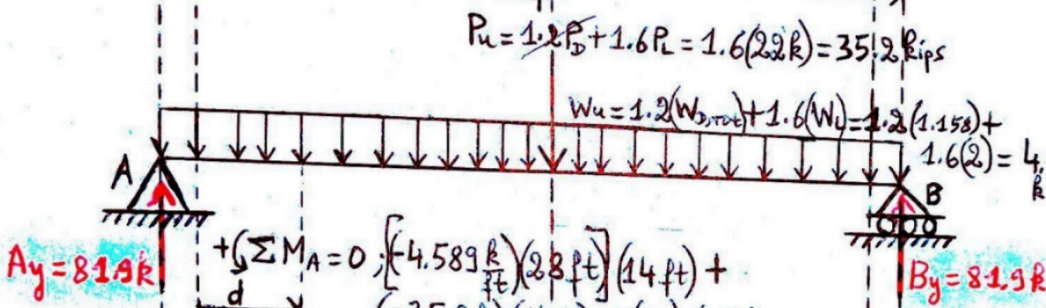 Pu = 1.2P_D + 1.6P_L = 1.6(22k) = 35.2 kips
Wu = 1.2(W_D,tot) + 1.6(W_L) = 1.2(1.158) +
1.6(2) = 4.
k
A
B
Ay = 81.9k
+ΣM_A = 0, [(-4.589 k/ft)(28ft)](14ft) +
By = 81.9k
d